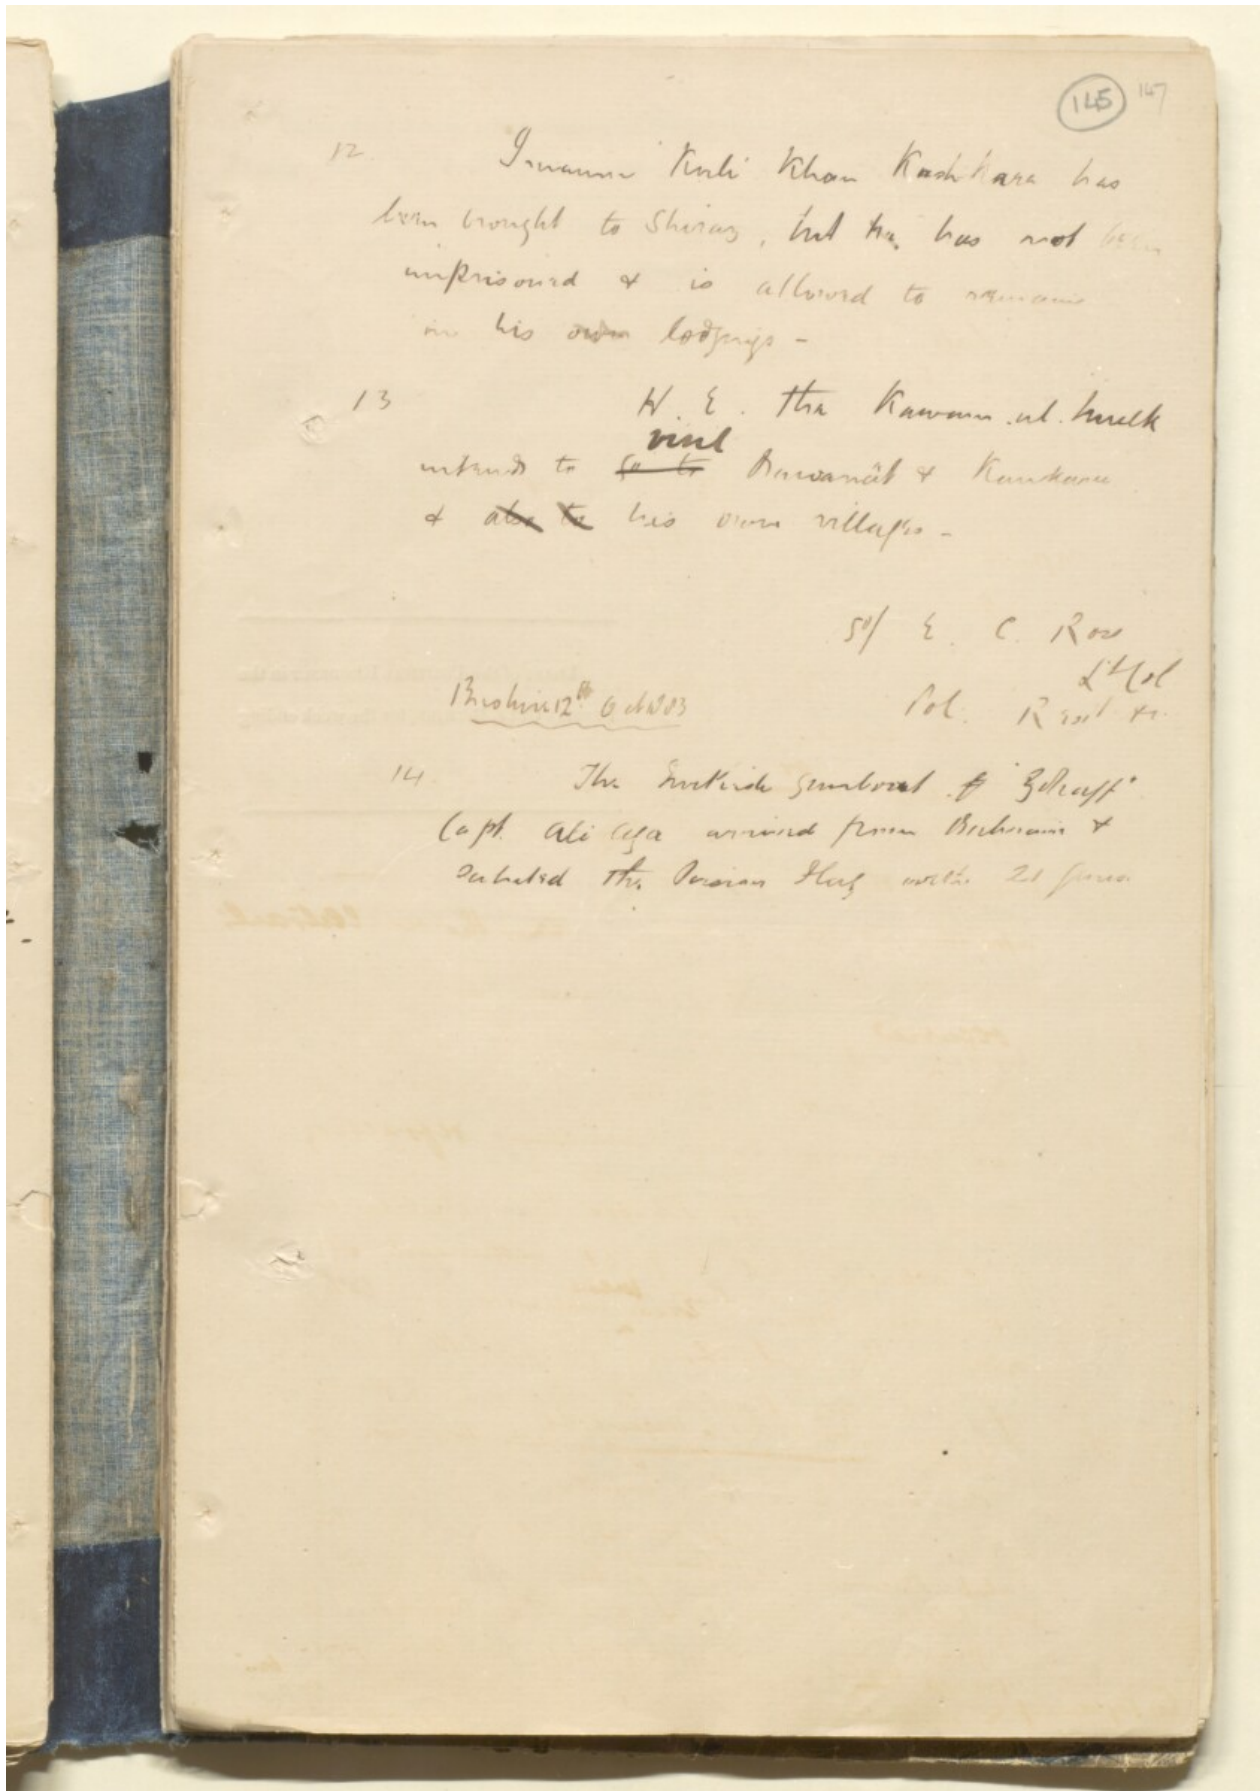 145 147
12 Imaum Kuli Khan Kashkara has
been brought to Shiraz, but he has not been
imprisoned & is allowed to remain
in his own lodgings -
13 H. E. the Kawam-ul-Mulk
visit
intends to go to Bawanat &
& also to his own villages -
sd/ E. C. Ross
Lt Col
Bushire 12th Oct 1883 Pol. Resdt
14 The Turkish gunboat
Capt. Ali Aga arrived from Bahrain &
saluted the Persian Flag with 21 guns